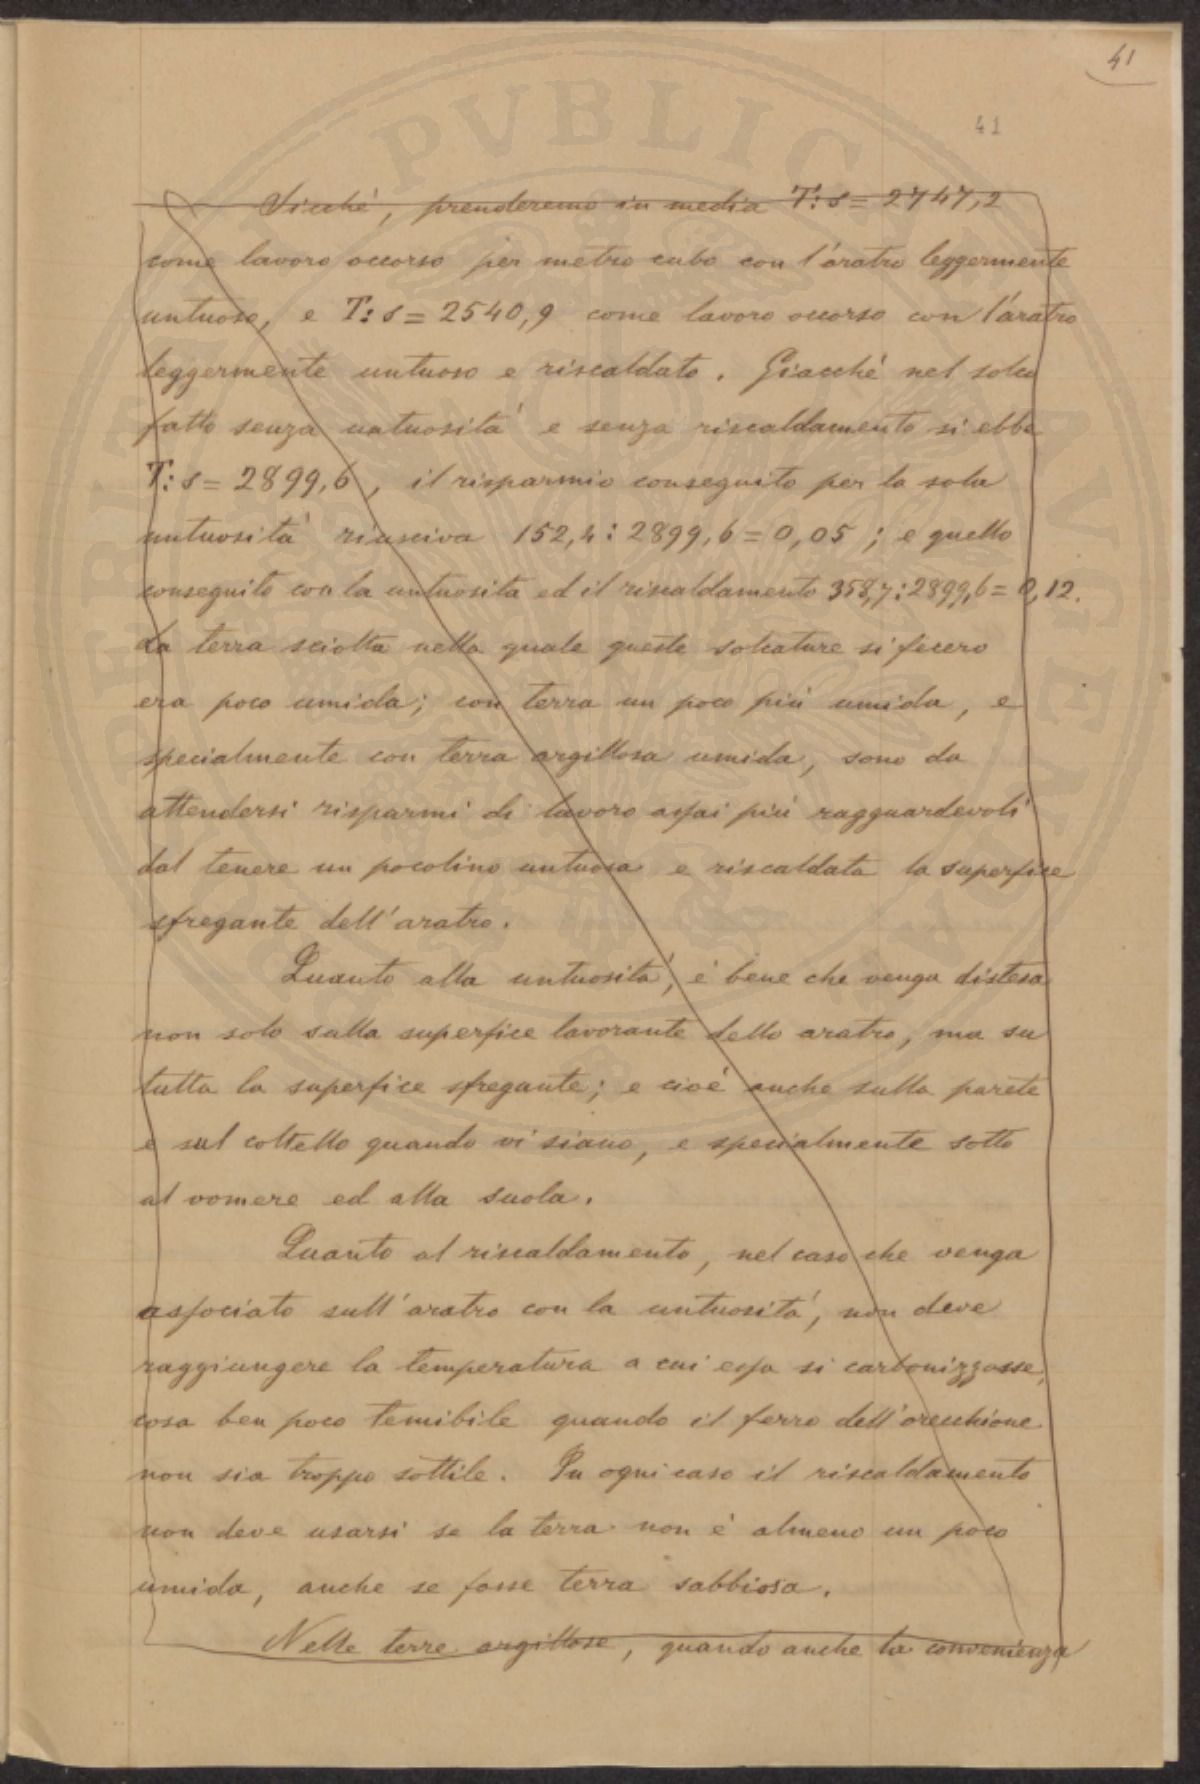 41
41
Sicché, prenderemo in media T:s = 2747,2
come lavoro occorso per metro cubo con l'aratro leggermente
untuoso, e T:s = 2540,9 come lavoro occorso con l'aratro
leggermente untuoso e riscaldato. Giacché nel solco
fatto senza untuosità e senza riscaldamento si ebbe
T:s = 2899,6, il risparmio conseguito per la sola
untuosità riusciva 152,4 : 2899,6 = 0,05 ; e quello
conseguito con la untuosità ed il riscaldamento 358,7 : 2899,6 = 0,12.
La terra sciolta nella quale queste solcature si fecero
era poco umida; con terra un poco più umida, e
specialmente con terra argillosa umida, sono da
attendersi risparmi di lavoro assai più ragguardevoli
dal tenere un pocolino untuosa e riscaldata la superfice
sfregante dell'aratro.
Quanto alla untuosità, è bene che venga distesa
non solo sulla superfice lavorante dello aratro, ma su
tutta la superfice sfregante; e cioè anche sulla parete
e sul coltello quando vi siano, e specialmente sotto
al vomere ed alla suola.
Quanto al riscaldamento, nel caso che venga
associato sull'aratro con la untuosità, non deve
raggiungere la temperatura a cui essa si carbonizzasse,
cosa ben poco temibile quando il ferro dell'orecchione
non sia troppo sottile. In ogni caso il riscaldamento
non deve usarsi se la terra non è almeno un poco
umida, anche se fosse terra sabbiosa.
Nelle terre argillose, quando anche la convenienza